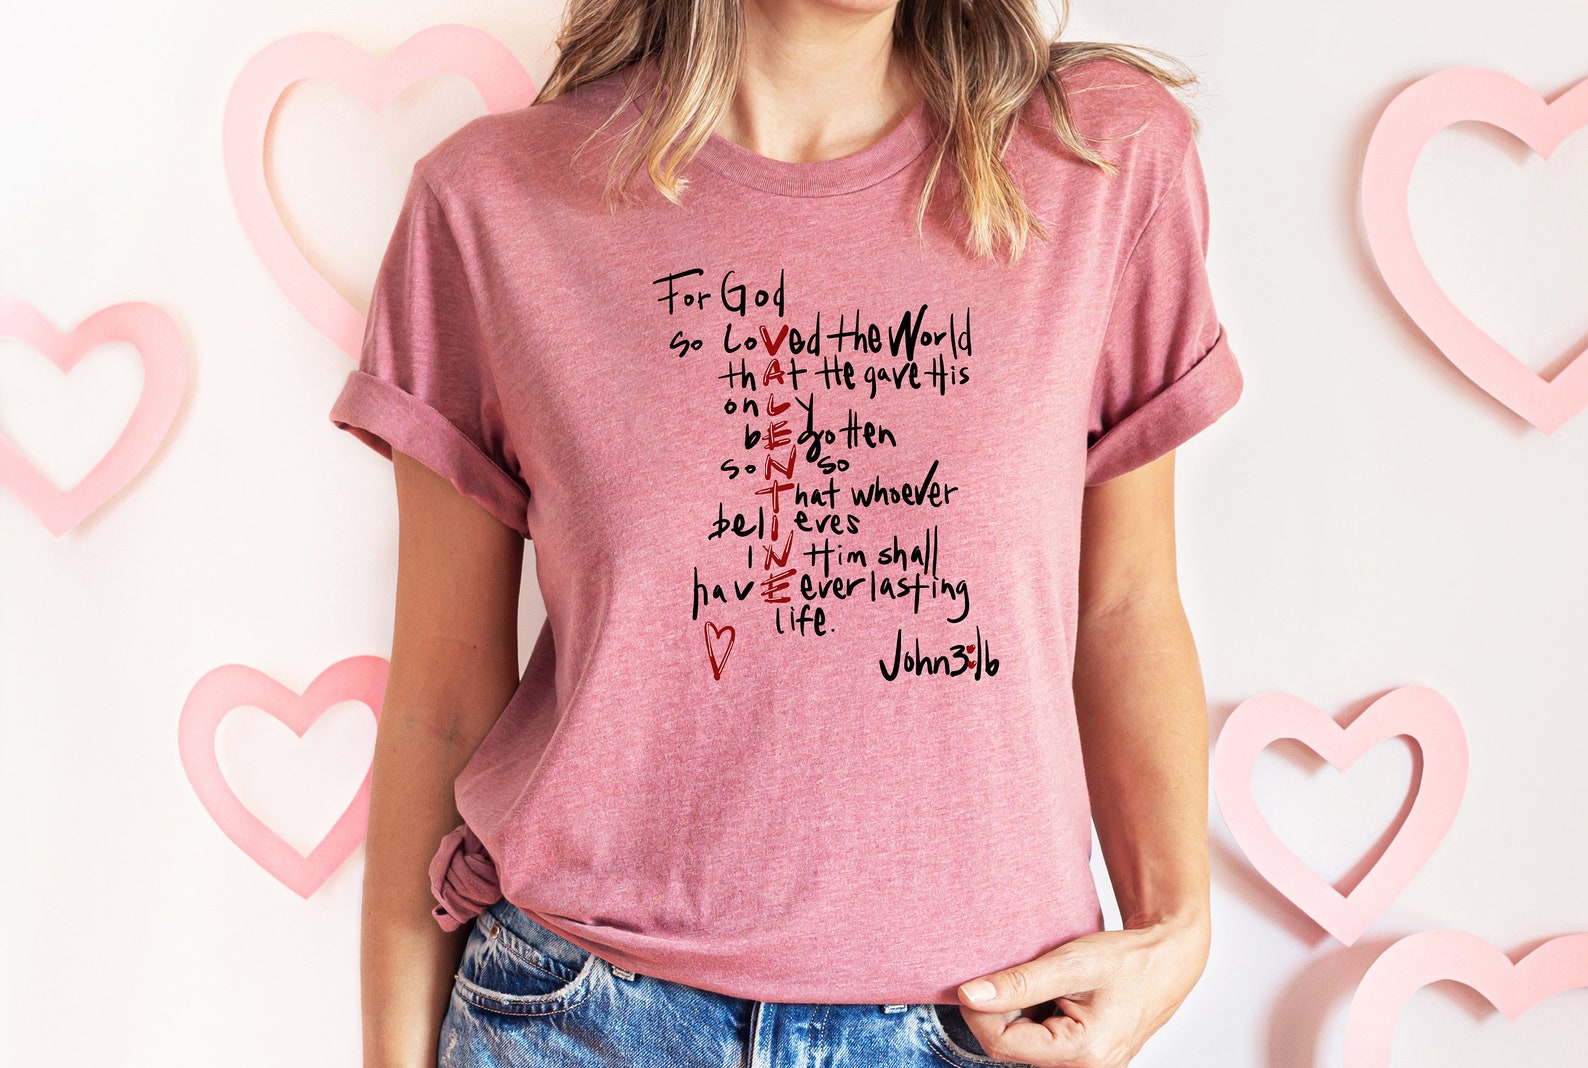 For God
so LoVed the World
thAt He gave His
onLy
bEgotten
soN so
That whoever
belIeves
IN Him shall
havE everlasting
life.
John 3:16